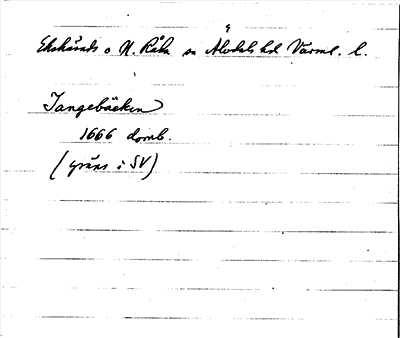 Ekshärads o N. Råda sn Älvdals hd Värml. l.
Tangebäcken
1666 domb.
(gräns i SV)